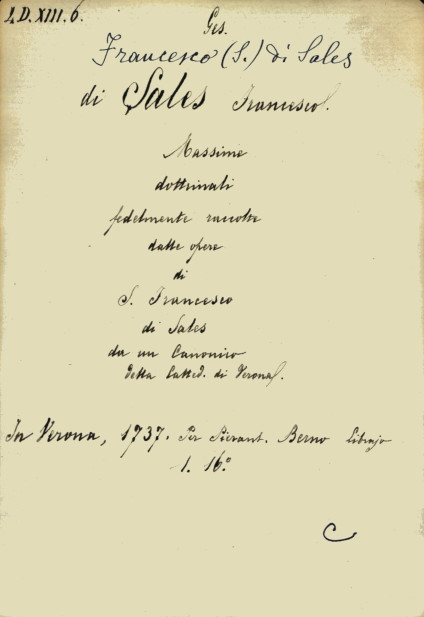 L.D.XIII.6.
Ges.
Francesco (S.) di Sales
di Sales Francesco.
Massime
dottrinali
fedelmente raccolte
dalle opere
di
S. Francesco
di Sales
da un Canonico
della Catted. di Verona.
In Verona, 1737. Per Pierant. Berno librajo
1. 16º
C